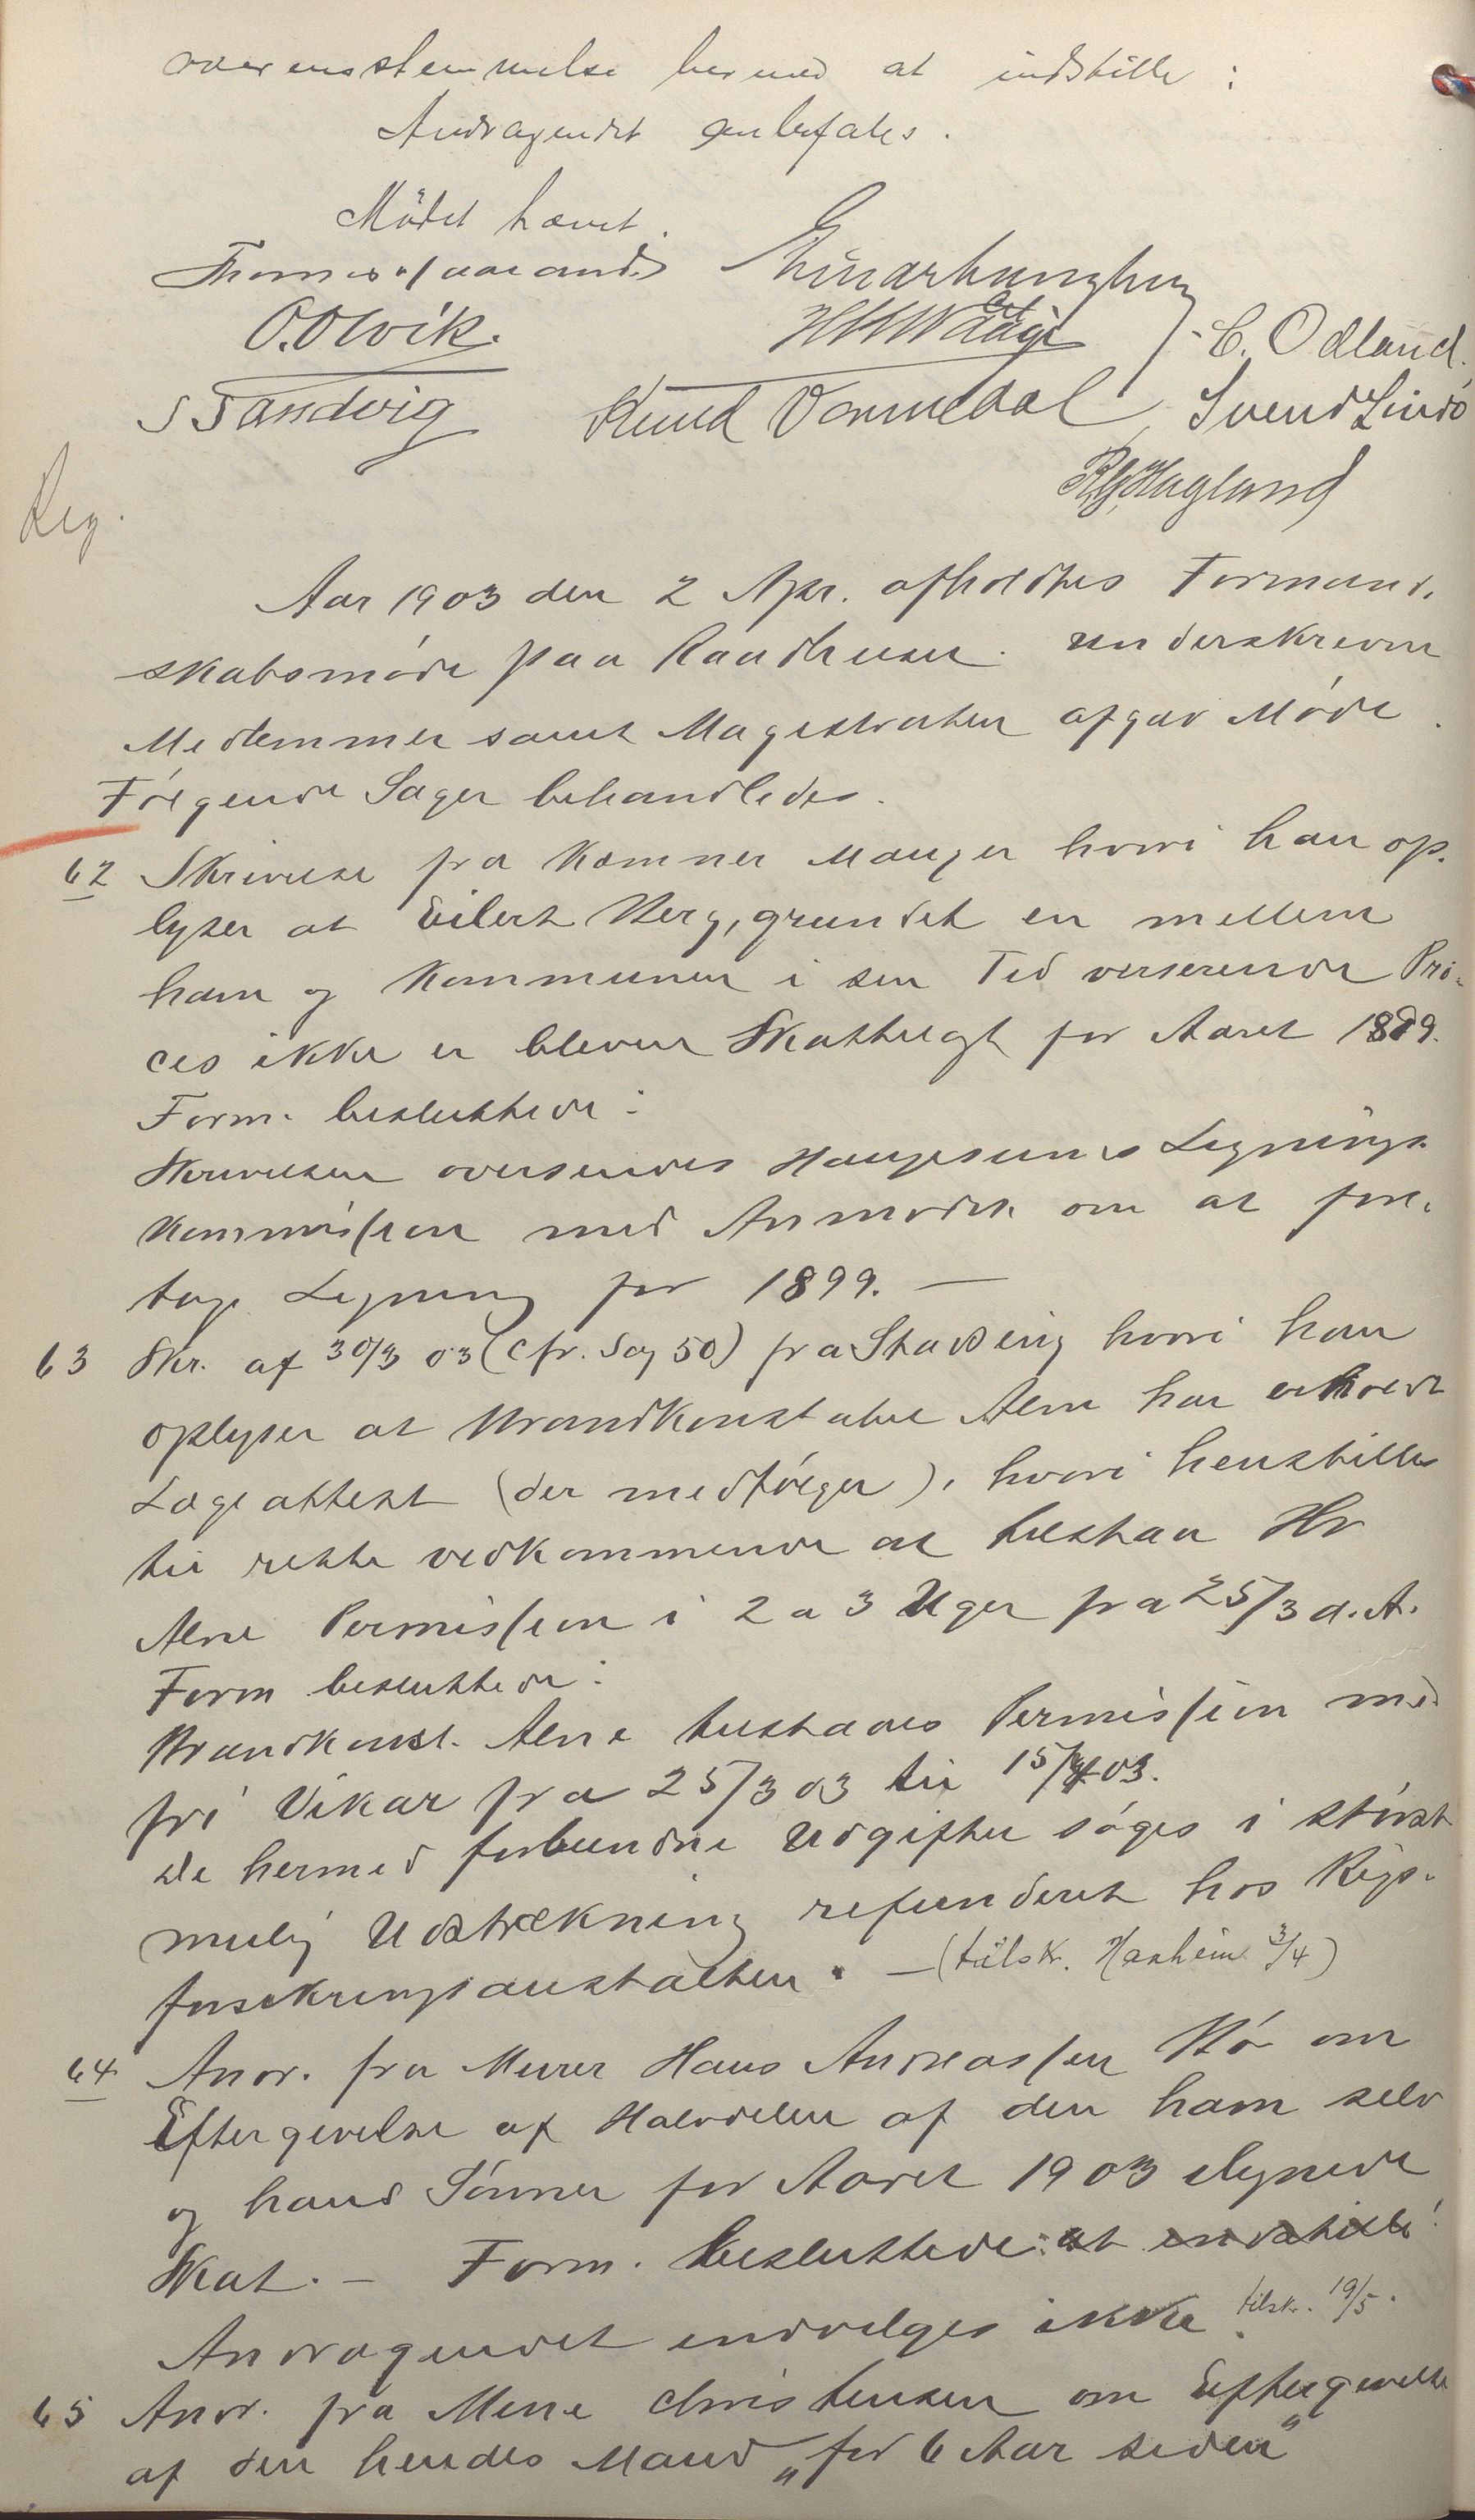 overensstemmelse hermed at indstille :
Andragendet anbefales .
Mødet hævet .
O. Olvik.
C. Odland.
S Sandvig
Knud Vormedal
Svend Lindø
R.G. Hagland
Reg.
Aar 1903 den 2 Apr. afholdtes Formand-
skabsmøde paa Raadhuset. Underskrevne
Medlemmer samt Magistraten afgav Møde .
Følgende Sager behandledes.
62 Skrivelse fra Kæmner Mauger hvori han op-
lyser at Eilert Berg, grundet en mellem
ham og Kommunen i sin Tid verserende Pro-
ces ikke er bleven Skattelagt for Aaret 1899.
Form. besluttede :
Skrivelsen oversendes Haugesunds Lignings-
kommission med Anmodn. om at fore-
tage Ligning for 1899. —
63 Skr. af 30/3 03 (cfr. Sag 50) fra Stadsing hvori han
oplyser at Brandkonstabel Alne har erholdt
Lægeattest (der medfølger), hvori henstilles
til rette vedkommende at tilstaa Hr
Alne Permission i 2 a 3 Uger fra 25/3 d. A.
Form besluttede :
Brandkonst. Alne tilstaaes Permission med
fri Vikar fra 25/3 03 til 15/4 03.
De hermed forbundne Udgifter søges i størst
mulig Udstrækning refunderet hos Rigs-
forsikringsanstalten. — (tilsk. 3/4)
64 Andr. fra Murer Hans Andreassen Bø om
Eftergivelse af Halvdelen af den ham selv
og hans Sønner for Aaret 1903 ilignede
Skat. — Form. besluttede: at indstille !
Andragendet indvilges ikke. tilskr. 19/5.
65 Andr. fra Mene Christensen om Eftergivelse
af den hendes Mand „for 6 Aar siden"